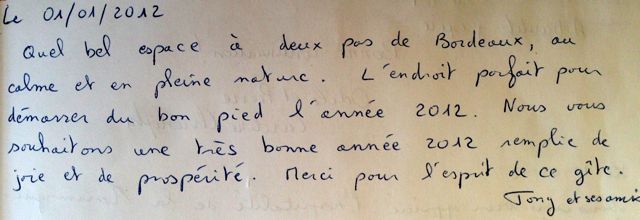 Le 01/01/2012
Quel bel espace à deux pas de Bordeaux, au
calme et en pleine nature. L'endroit parfait pour
démarrer du bon pied l'année 2012. Nous vous
souhaitons une très bonne année 2012 remplie de
joie et de prospérité. Merci pour l'esprit de ce gîte.
Tony et ses amis